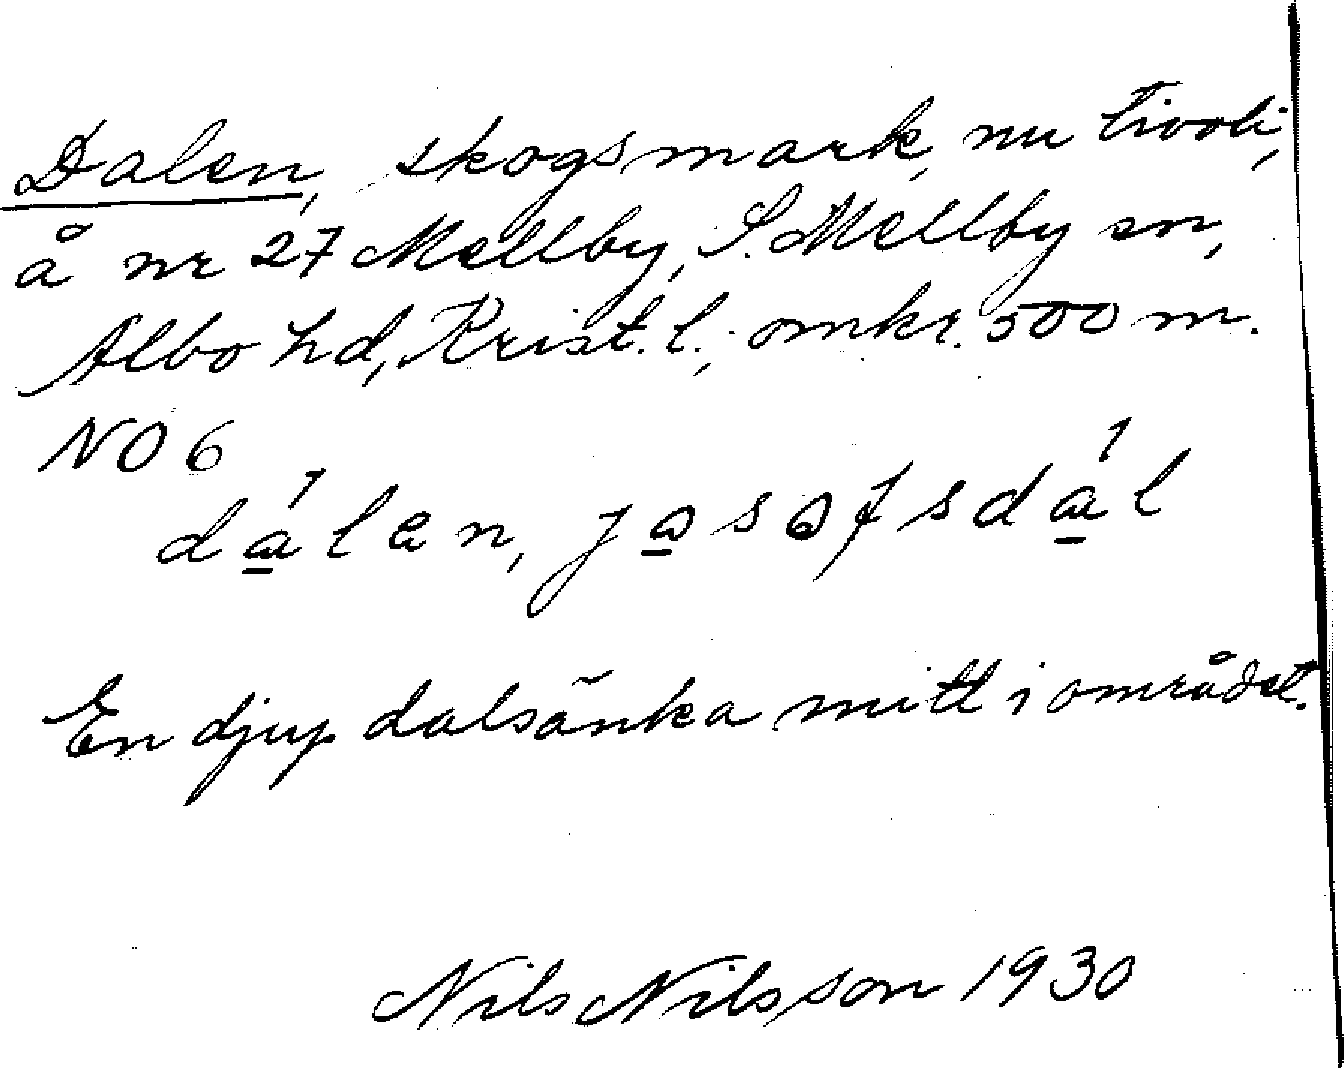 Dalen, skogsmark, nu Tivoli,
å nr 27 Mellby, S. Mellby sn,
Albo hd, Krist. l.; omkr. 500 m.
NO 6
dálen, josofsdál
En djup dalsänka mitt i området.
Nils Nilsson 1930